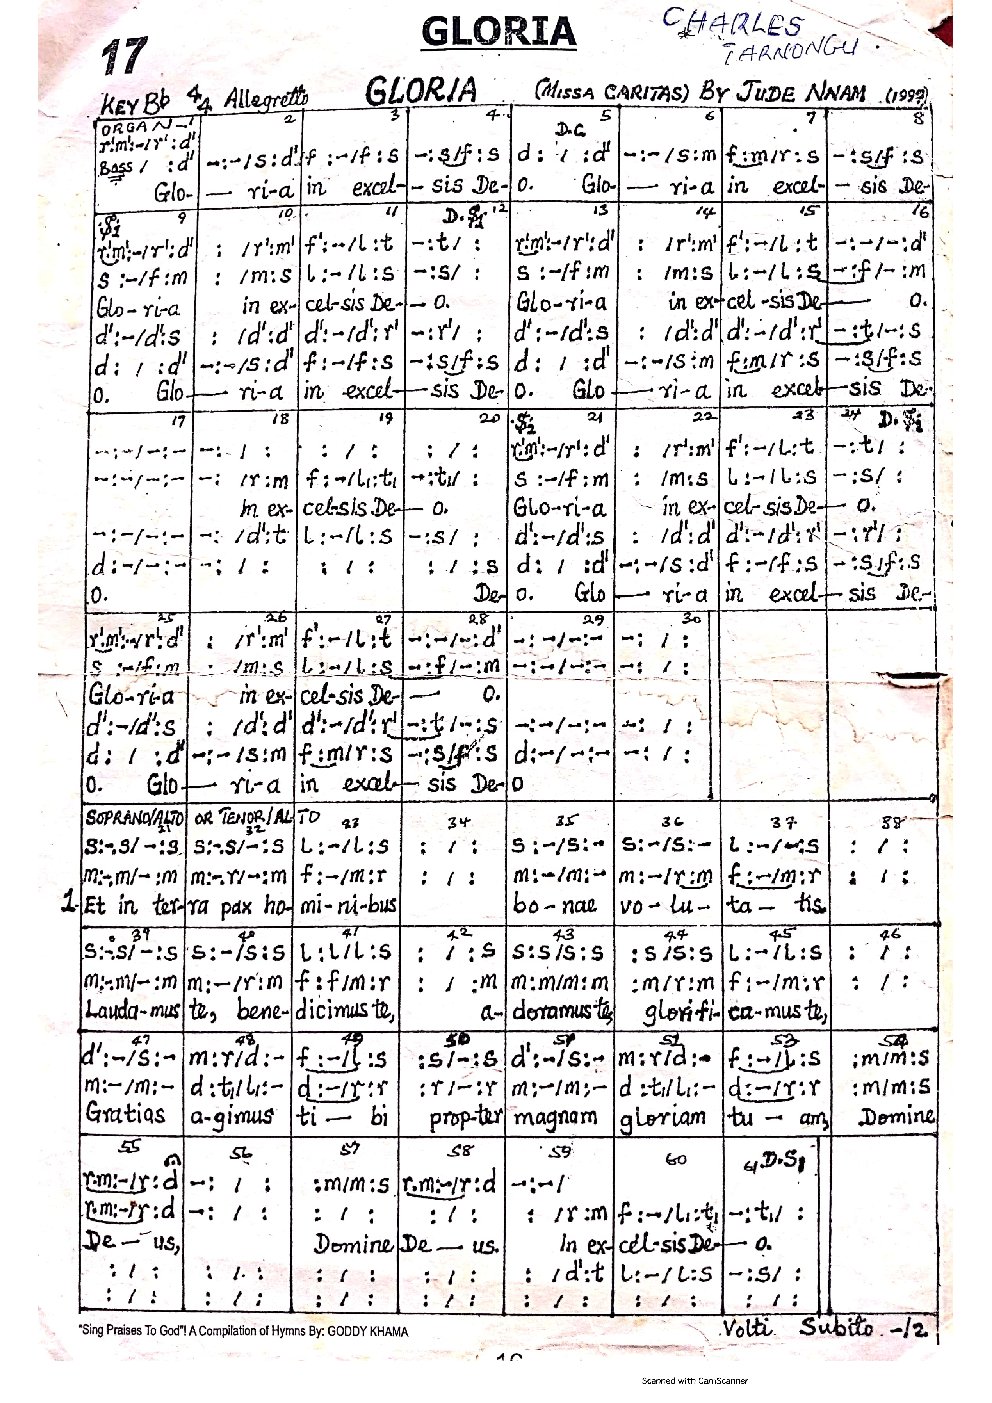 GLORIA
CHARLES
TARNONGU.
17
KEY Bb 4/4 Allegretto GLORIA (MISSA CARITAS) BY JUDE NNAM (1999)
ORGAN 2 3 4 D.C. 5 6 7 8
r'm':-/r':d'
Bass / :d' -:-/s:d' f:-/f:s -:s/f:s d: / :d' -:-/s:m f:m/r:s -:s/f:s
Glo- — ri-a in excel- - sis De- o. Glo- — ri-a in excel- - sis De-
9 10 11 D.S1 12 13 14 15 16
r'm':-/r':d' : /r':m' f':-/l:t -:t/ : r'm':-/r':d' : /r':m' f':-/l:t -:-/-:d'
s:-/f:m : /m:s l:-/l:s -:s/ : s:-/f:m : /m:s l:-/l:s -:f/-:m
Glo-ri-a in ex- cel-sis De- - o. Glo-ri-a in ex- cel-sis De- o.
d':-/d':s : /d':d' d':-/d':r' -:r'/ : d':-/d':s : /d':d' d':-/d':r' -:t/-:s
d: / :d' -:-/s:d' f:-/f:s -:s/f:s d: / :d' -:-/s:m f:m/r:s -:s/f:s
o. Glo — ri-a in excel — sis De- o. Glo — ri-a in excel — sis De-
17 18 19 20 S2 21 22 23 24 D.S2
-:-/-:- -: / : : / : : / : r'm':-/r':d' : /r':m' f':-/l:t -:t/ :
-:-/-:- -: /r:m f:-/l₁:t₁ -:t₁/ : s:-/f:m : /m:s l:-/l:s -:s/ :
In ex- cel-sis De- - o. Glo-ri-a in ex- cel-sis De- o.
-:-/-:- -: /d':t l:-/l:s -:s/ : d':-/d':s : /d':d' d':-/d':r' -:r'/ :
d:-/-:- -: / : : / : : / :s d: / :d' -:-/s:d' f:-/f:s -:s/f:s
o. De- o. Glo — ri-a in excel — sis De-
25 26 27 28 29 30
r'm':-/r':d' : /r':m' f':-/l:t -:-/-:d' -:-/-:- -: / :
s:-/f:m : /m:s l:-/l:s -:f/-:m -:-/-:- -: / :
Glo-ri-a in ex- cel-sis De- — o.
d':-/d':s : /d':d' d':-/d':r' -:t/-:s -:-/-:- -: / :
d: / :d' -:-/s:m f:m/r:s -:s/f:s d:-/-:- -: / :
o. Glo — ri-a in excel — sis De- o
SOPRANO/ALTO OR TENOR/ALTO
31 32 33 34 35 36 37 38
s:-.s/-:s s:-.s/-:s l:-/l:s : / : s:-/s:- s:-/s:- l:-/-:s : / :
m:-.m/-:m m:-.r/-:m f:-/m:r : / : m:-/m:- m:-/r:m f:-/m:r : / :
1. Et in ter-ra pax ho- mi-ni-bus bo-nae vo-lu- ta- tis
39 40 41 42 43 44 45 46
s:-.s/-:s s:-/s:s l:l/l:s : / :s s:s/s:s :s/s:s l:-/l:s : / :
m:-.m/-:m m:-/r:m f:f/m:r : / :m m:m/m:m :m/r:m f:-/m:r : / :
Lauda-mus te, bene- dicimus te, a- doramus te, glorifi- ca-mus te,
47 48 49 50 51 52 53 54
d':-/s:- m:r/d:- f:-/l:s :s/-:s d':-/s:- m:r/d:- f:-/l:s :m/m:s
m:-/m:- d:t₁/l₁:- d:-/r:r :r/-:r m:-/m:- d:t₁/l₁:- d:-/r:r :m/m:s
Gratias a-gimus ti — bi prop-ter magnam gloriam tu - am, Domine
55 56 57 58 59 60 61 D.S1
r.m:-/r:d -: / : :m/m:s r.m:-/r:d -:-/
r.m:-/r:d -: / : : / : : / : : /r:m f:-/l₁:t₁ -:t₁/ :
De - us, Domine De — us. In ex- cel-sis De- o.
: / : : / : : / : : / : : /d':t l:-/l:s -:s/ :
: / : : / : : / : : / : : / : : / : : / :
"Sing Praises To God"! A Compilation of Hymns By: GODDY KHAMA Volti Subito -/2
Scanned with CamScanner